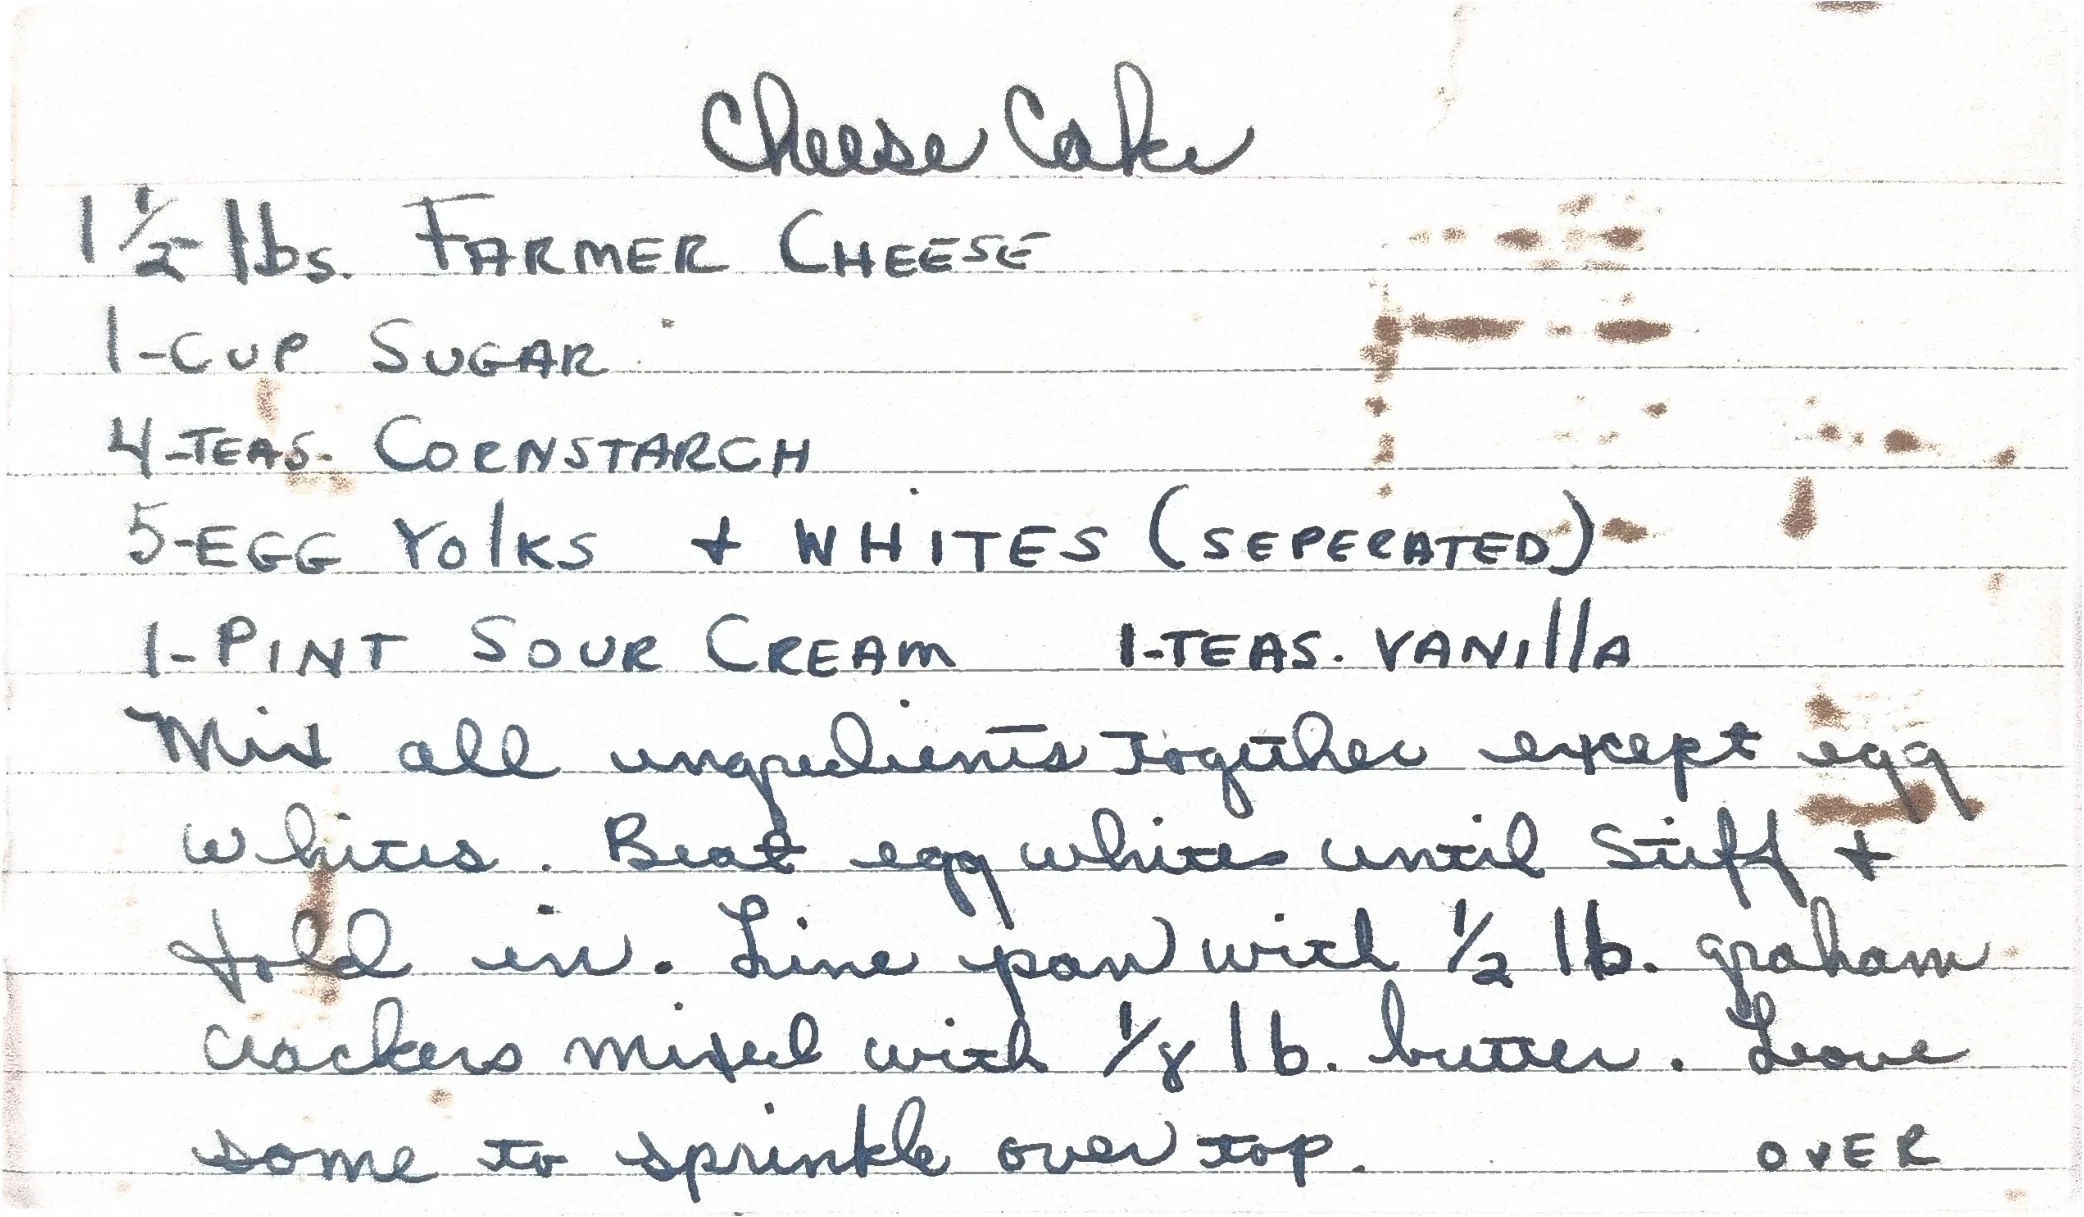 Cheese Cake
1 1/2 lbs. FARMER CHEESE
1-CUP SUGAR
4-TEAS. CORNSTARCH
5-EGG YOLKS + WHITES (SEPERATED)
1-PINT SOUR CREAM 1-TEAS. VANILLA
Mix all ungredients together except egg
whites. Beat egg whites until stiff +
fold in. Line pan with 1/2 lb. graham
crackers mixed with 1/8 lb. butter. Leave
some to sprinkle over top. OVER